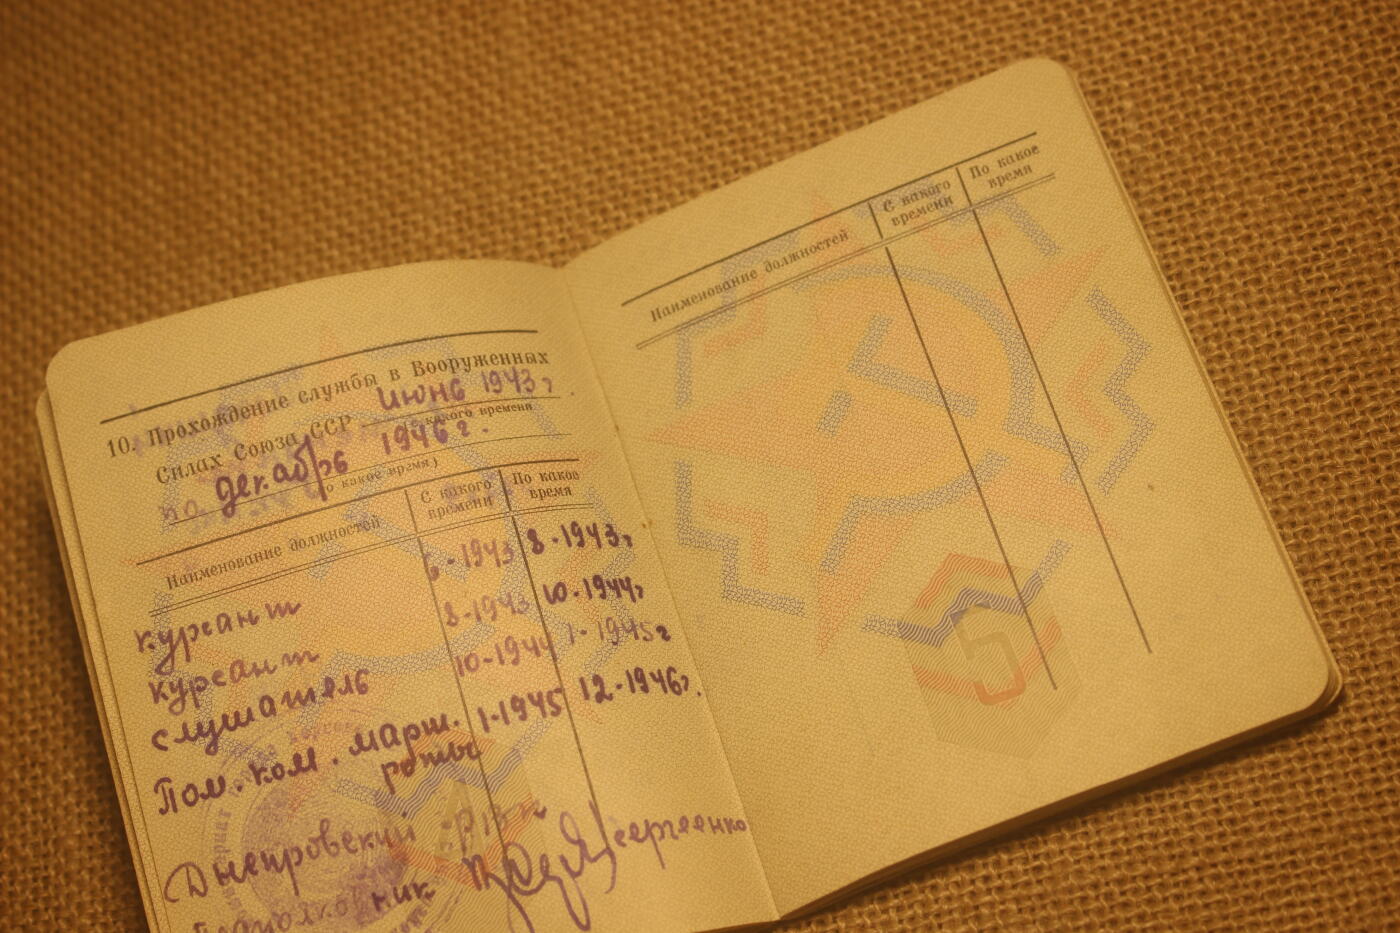 10. Прохождение службы в Вооруженных
Силах Союза ССР июнь 1943 г.
(с какого времени
по декабрь 1946 г.
по какое время)
Наименование должностей С какого времени По какое время
курсант 6-1943 8-1943 г
курсант 8-1943 10-1944 г
слушатель 10-1944 1-1945 г
Пом. ком. марш. роты 1-1945 12-1946 г.
Днепровский РВК
Подполковник Сергеенко
Наименование должностей С какого времени По какое время
4
5